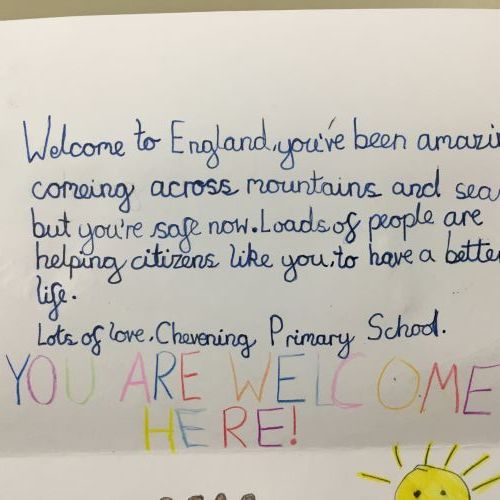 Welcome to England, you've been amazi
comeing across mountains and sea
but you're safe now. Loads of people are
helping citizens like you, to have a better
life.
Lots of love, Chevening Primary School.
YOU ARE WELCOME
HERE!